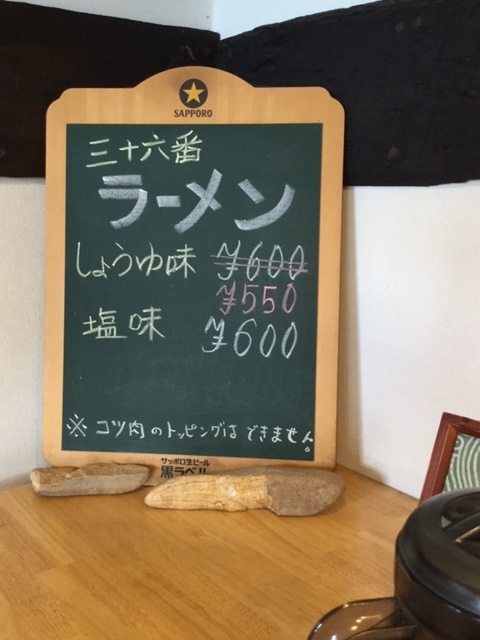 SAPPORO
三十六番
ラーメン
しょうゆ味 ¥600
¥550
塩味 ¥600
※ コツ肉のトッピングは できません。
サッポロ生ビール
黒ラベル